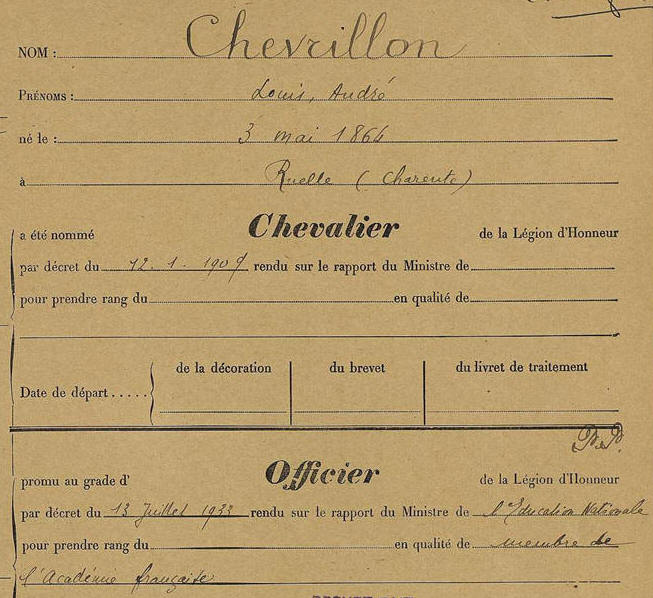 NOM : Chevrillon
PRÉNOMS : Louis, André
né le : 3 mai 1864
à Ruelle (Charente)
a été nommé Chevalier de la Légion d'Honneur
par décret du 12.1.1909 rendu sur le rapport du Ministre de
pour prendre rang du en qualité de
de la décoration du brevet du livret de traitement
Date de départ .....
promu au grade d' Officier de la Légion d'Honneur
par décret du 13 Juillet 1933 rendu sur le rapport du Ministre de l'Education Nationale
pour prendre rang du en qualité de membre de
l'Académie française